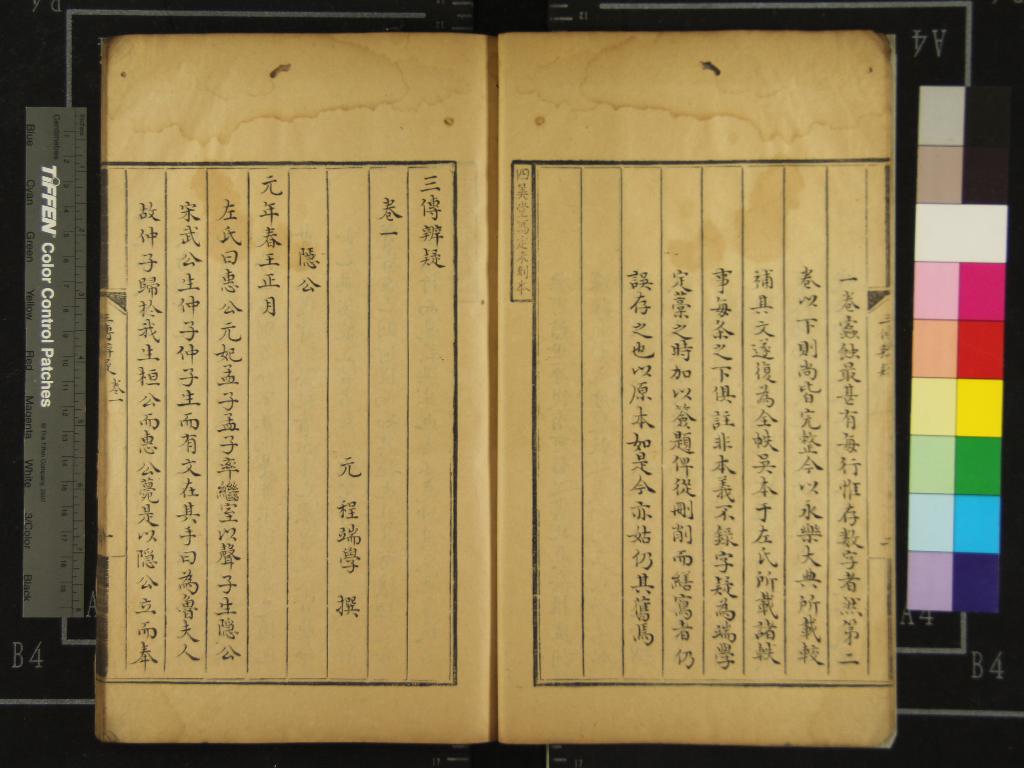 一卷蠧蝕最甚有每行惟存数字者然第二
卷以下則尚皆完整今以永樂大典所載較
補其文遂復為全帙吳本于左氏所載諸軼
事每条之下俱註非本義不録字疑為端學
定藁之時加以簽題俾從刪削而繕寫者仍
誤存之也以原本如是今亦姑仍其舊焉
三傳辨疑
卷一
隱公
元 程端學 撰
元年春王正月
左氏曰惠公元妃孟子孟子卒繼室以聲子生隱公
宋武公生仲子仲子生而有文在其手曰為魯夫人
故仲子歸於我生桓公而惠公薨是以隱公立而奉
三傳辨疑 卷一
TIFFEN Color Control Patches
Centimetres
Inches
Blue
Cyan
Green
Yellow
Red
Magenta
White
3/Color
Black
B4
B4
A4
A4